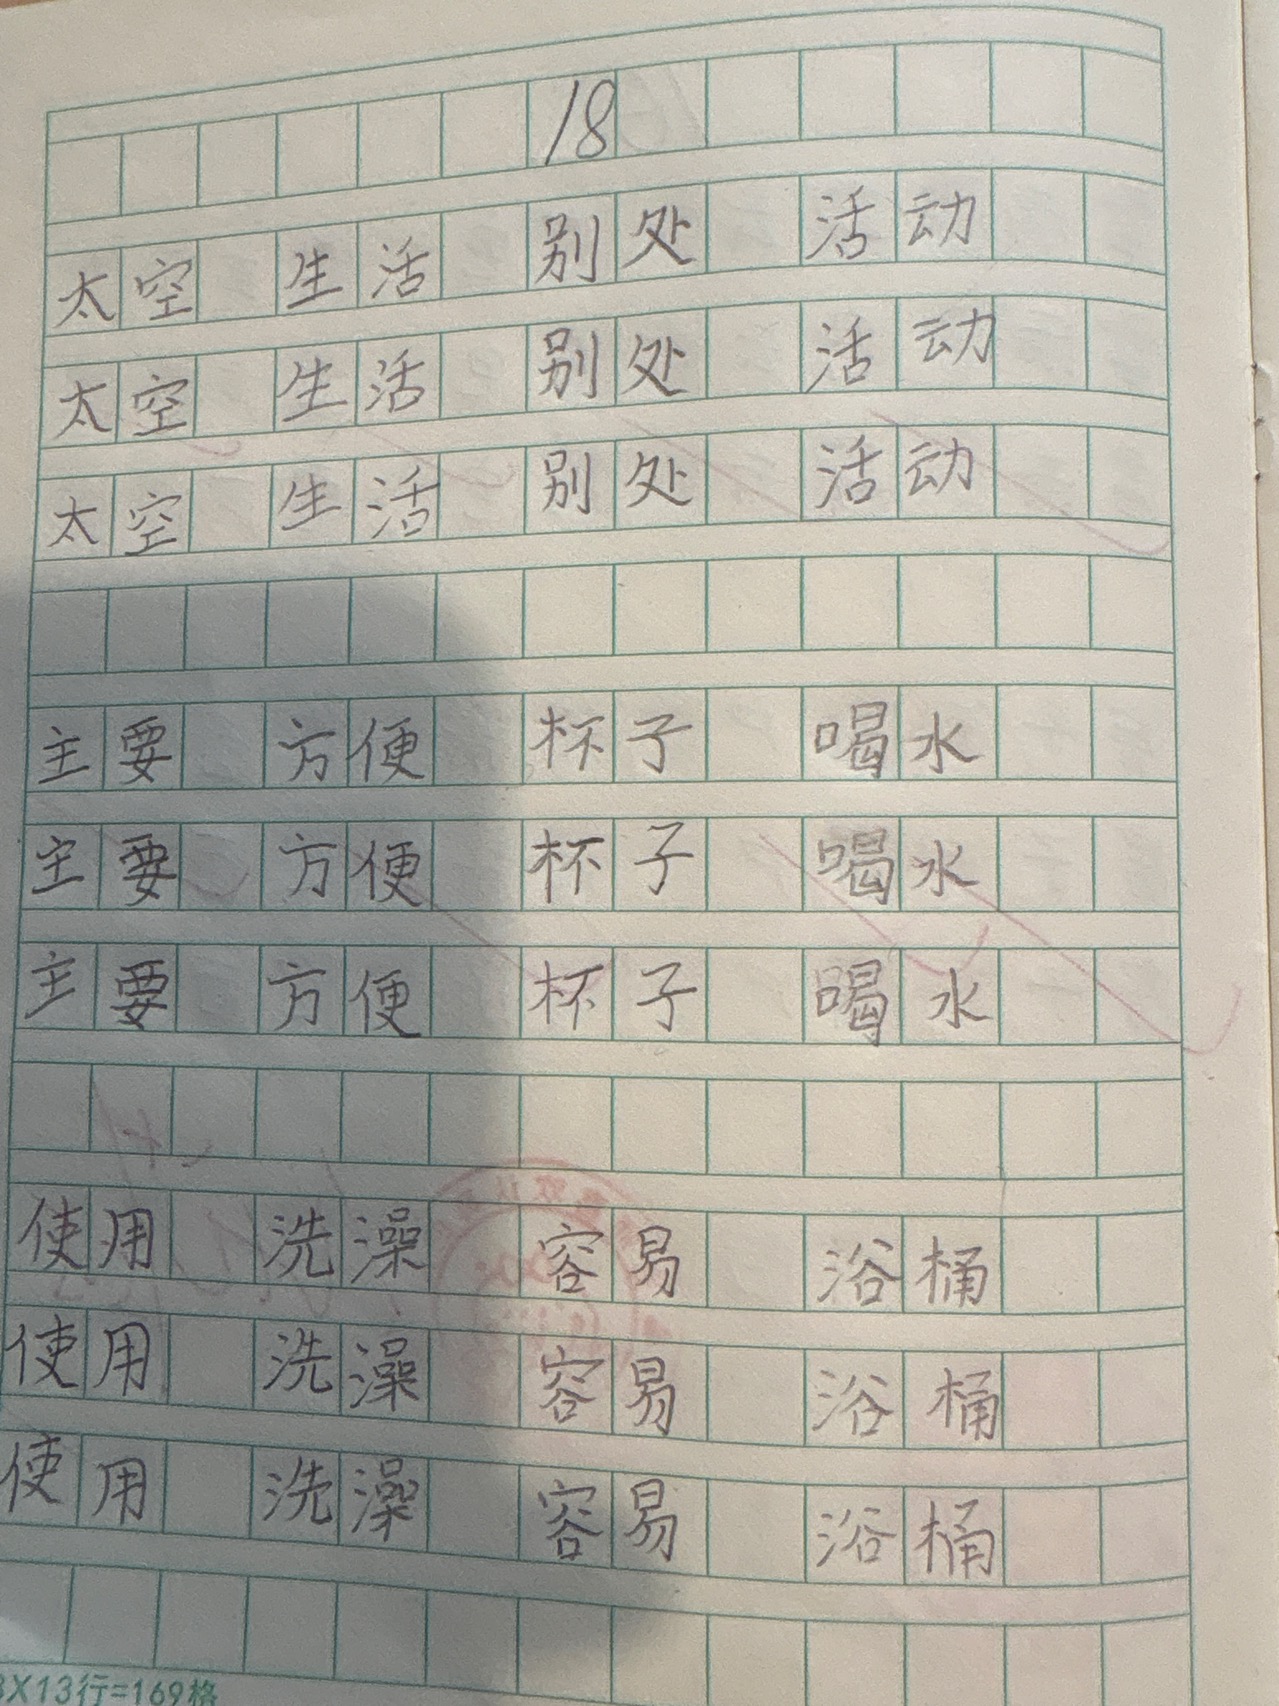 18
太空 生活 别处 活动
太空 生活 别处 活动
太空 生活 别处 活动
主要 方便 杯子 喝水
主要 方便 杯子 喝水
主要 方便 杯子 喝水
使用 洗澡 容易 浴桶
使用 洗澡 容易 浴桶
使用 洗澡 容易 浴桶
3X13行=169格